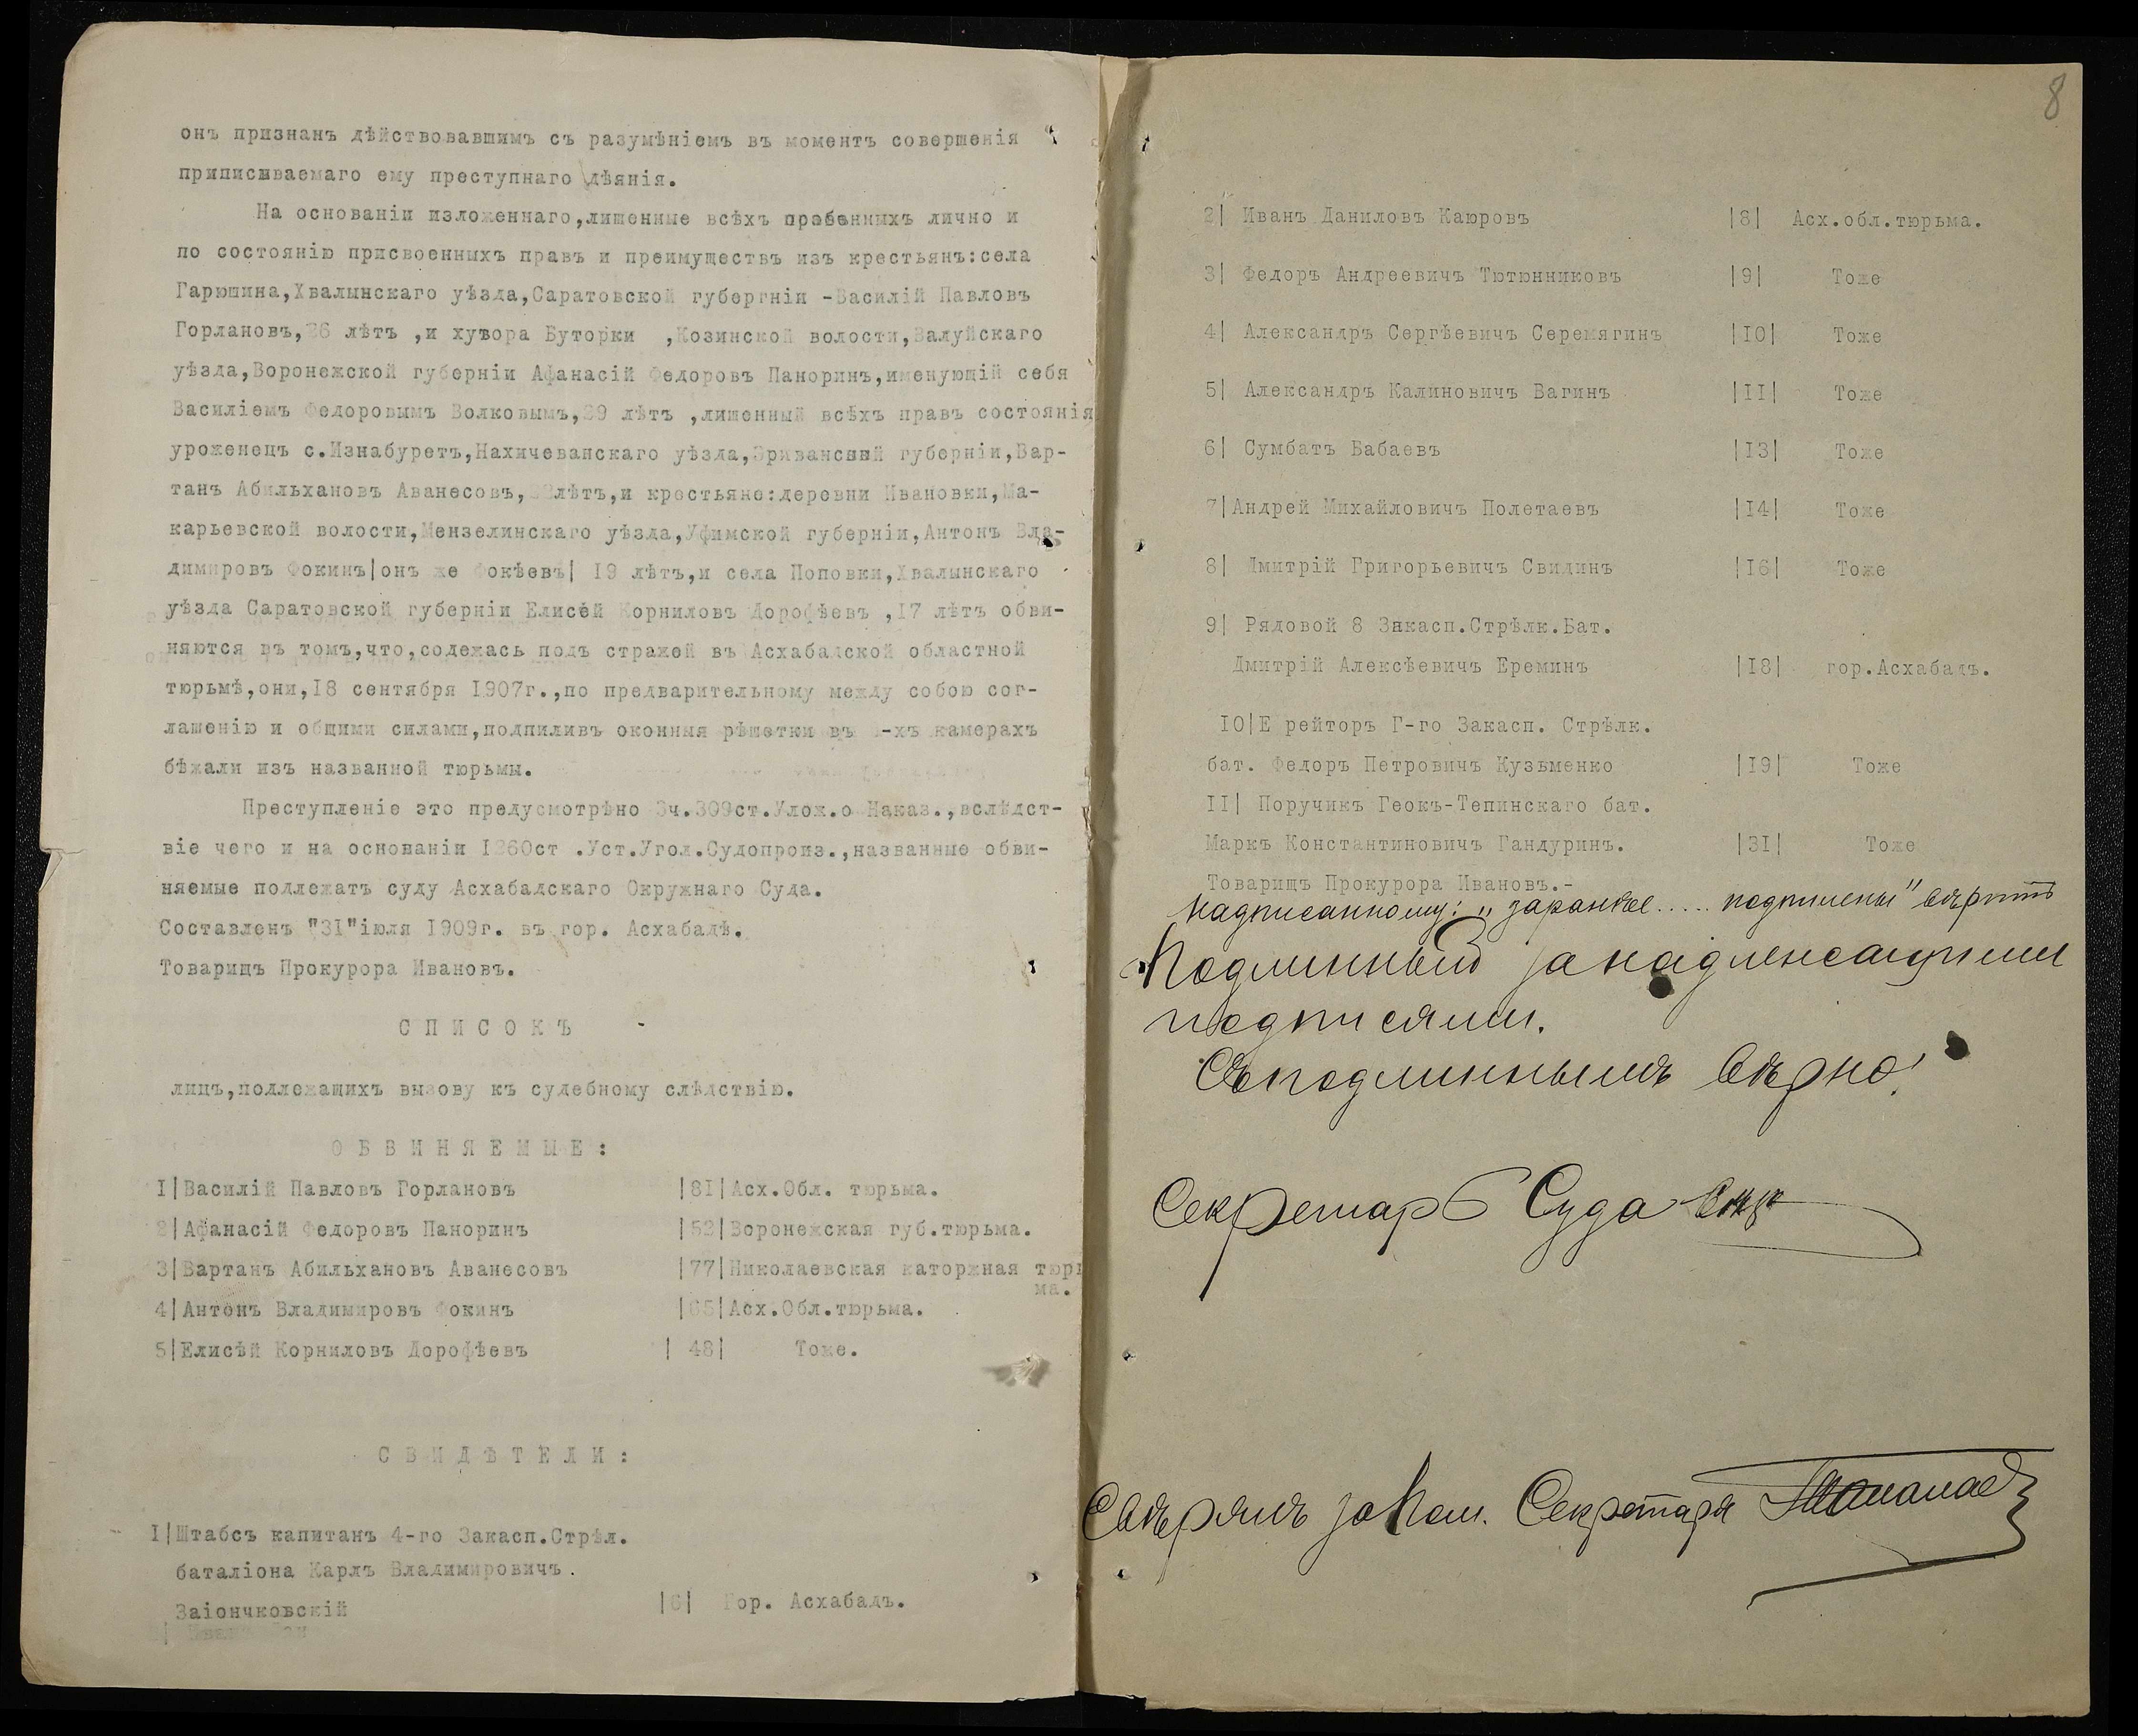 онъ признанъ дѣйствовавшимъ съ разумѣніемъ въ моментъ совершенія
приписываемаго ему преступнаго дѣянія.
На основаніи изложеннаго,лишенные всѣхъ лично и
по состоянію присвоенныхъ правъ и преимуществъ изъ крестьянъ:села
Гарюшина,Хвалынскаго уѣзда,Саратовской губергніи -Василій Павловъ
Горлановъ,26 лѣтъ ,и хутора Буторки ,Козинской волости,Валуйскаго
уѣзда,Воронежской губерніи Афанасій Федоровъ Паноринъ,именующій себя
Василіемъ Федоровымъ Волковымъ,39 лѣтъ ,лишенный всѣхъ правъ состоянія
уроженецъ с.Изнабуретъ,Нахичеванскаго уѣзда,Эриванской губерніи,Вар-
танъ Абильхановъ Аванесовъ, лѣтъ,и крестьяне:деревни Ивановки,Ма-
карьевской волости,Мензелинскаго уѣзда,Уфимской губерніи,Антонъ Вла-
димировъ Фокинъ|онъ же Фокѣевъ| 19 лѣтъ,и села Поповки,Хвалынскаго
уѣзда Саратовской губерніи Елисѣй Корниловъ Дорофѣевъ ,17 лѣтъ обви-
няются въ томъ,что,содежась подъ стражей въ Асхабадской областной
тюрьмѣ,они,18 сентября 1907г.,по предварительному между собою сог-
лашенію и общими силами,подпиливъ оконныя рѣшетки въ -хъ камерахъ
бѣжали изъ названной тюрьмы.
Преступленіе это предусмотрѣно 3ч.309ст.Улож.о Наказ.,вслѣдст-
віе чего и на основаніи 1260ст .Уст.Угол.Судопроиз.,названные обви-
няемые подлежатъ суду Асхабадскаго Окружнаго Суда.
Составленъ "31"іюля 1909г. въ гор. Асхабадѣ.
Товарищъ Прокурора Ивановъ.
СПИСОКЪ
лицъ,подлежащихъ вызову къ судебному слѣдствію.
ОБВИНЯЕМЫЕ:
1|Василій Павловъ Горлановъ |81|Асх.Обл. тюрьма.
2|Афанасій Федоровъ Паноринъ |52|Воронежская губ.тюрьма.
3|Вартанъ Абильхановъ Аванесовъ |77|Николаевская каторжная тюрь
ма.
4|Антонъ Владимировъ Фокинъ |65|Асх.Обл.тюрьма.
5|Елисѣй Корниловъ Дорофѣевъ | 48| Тоже.
СВИДѢТЕЛИ:
1|Штабсъ капитанъ 4-го Закасп.Стрѣл.
баталіона Карлъ Владимировичъ.
Заіончковскій |6| Гор. Асхабадъ.
8
2| Иванъ Даниловъ Каюровъ |8| Асх.обл.тюрьма.
3| Федоръ Андреевичъ Тютюнниковъ |9| Тоже
4| Александръ Сергѣевичъ Серемягинъ |10| Тоже
5| Александръ Калиновичъ Вагинъ |11| Тоже
6| Сумбатъ Бабаевъ |13| Тоже
7|Андрей Михайловичъ Полетаевъ |14| Тоже
8| Дмитрій Григорьевичъ Свидинъ |16| Тоже
9| Рядовой 8 Закасп.Стрѣлк.Бат.
Дмитрій Алексѣевичъ Ереминъ |18| гор.Асхабадъ.
10|Е рейторъ Г-го Закасп. Стрѣлк.
бат. Федоръ Петровичъ Кузьменко |19| Тоже
11| Поручикъ Геокъ-Тепинскаго бат.
Маркъ Константиновичъ Гандуринъ. |31| Тоже
Товарищъ Прокурора Ивановъ.-
надписанному: „заранѣе..... подпилены" вѣрить
Подлинный за надлежащими
подписями.
Съ подлиннымъ вѣрно:
Секретарь Суда
Свѣрялъ за Пом. Секретаря